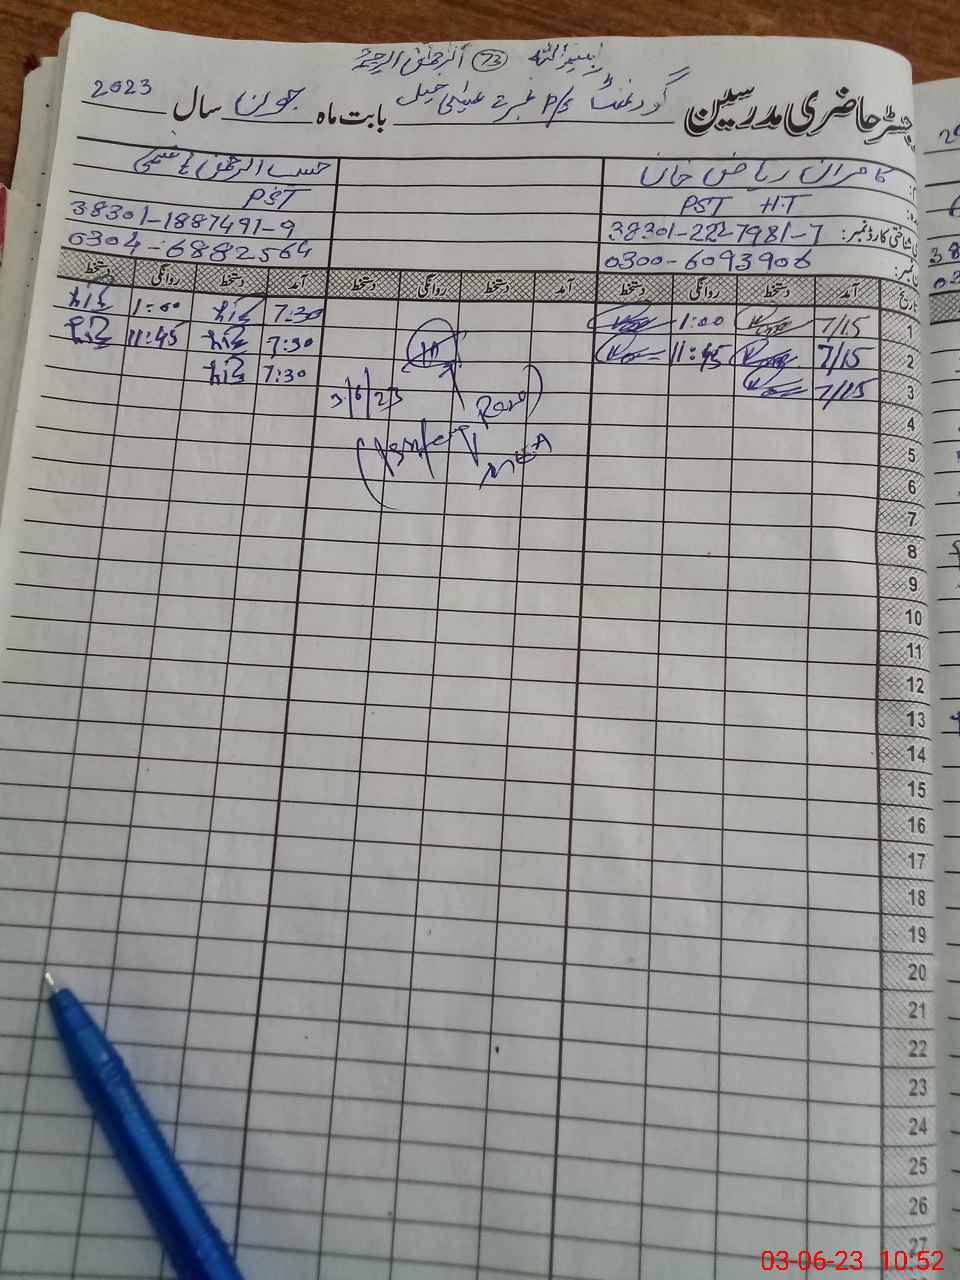 بسم اللہ 73 الرحمٰن الرحیم
رجسٹر حاضری مدرسین گورنمنٹ P/S نمبر 2 عیسیٰ خیل بابت ماہ جون سال 2023
کامران ریاض خان
حسیب الرحمٰن ہاشمی
PST H.T
PST
شناختی کارڈ نمبر: 38301-2227981-7
38301-1887491-9
نمبر: 0300-6093906
0304-6882564
تاریخ آمد دستخط روانگی دستخط آمد دستخط روانگی دستخط آمد دستخط روانگی دستخط
1 7/15 1:00 7:30 1:00
2 7/15 11:45 7:30 11:45
3 7/15 7:30
3/6/23
MEA
4
5
6
7
8
9
10
11
12
13
14
15
16
17
18
19
20
21
22
23
24
25
26
27
03-06-23 10:52